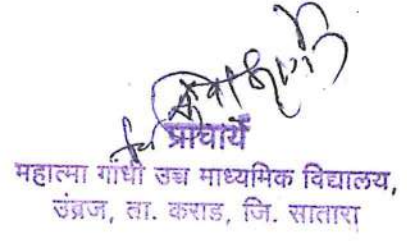 प्राचार्य
महात्मा गांधी उच्च माध्यमिक विद्यालय,
उंब्रज, ता. कराड, जि. सातारा